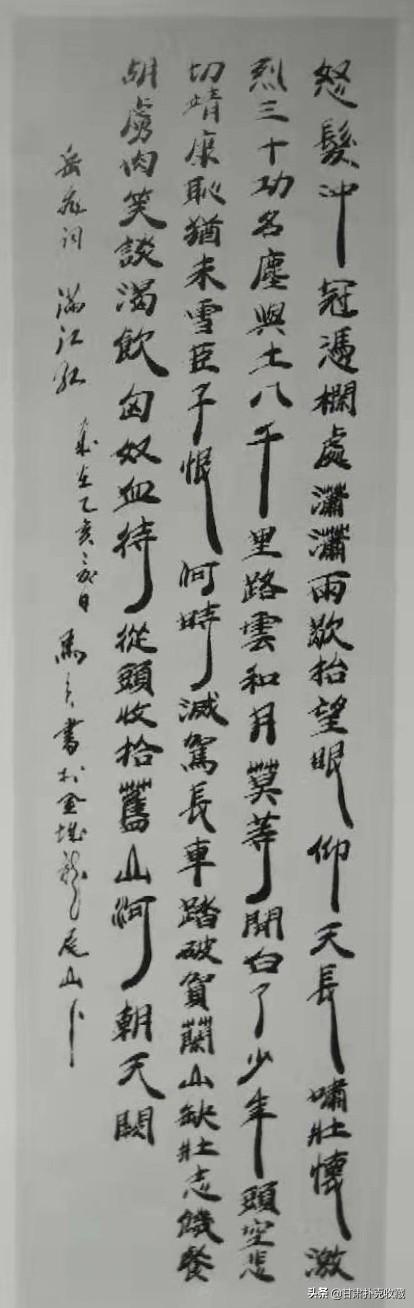 怒髮冲冠憑欄處瀟瀟雨歇抬望眼仰天長嘯壯懷激
烈三十功名塵與土八千里路雲和月莫等閒白了少年頭空悲
切靖康恥猶未雪臣子恨何時滅駕長車踏破賀蘭山缺壯志饑餐
胡虜肉笑談渴飲匈奴血待從頭收拾舊山河朝天闕
岳飛詞 滿江紅
歲在乙亥 日 書於金城龍尾山下
头条 @甘肃扑克收藏